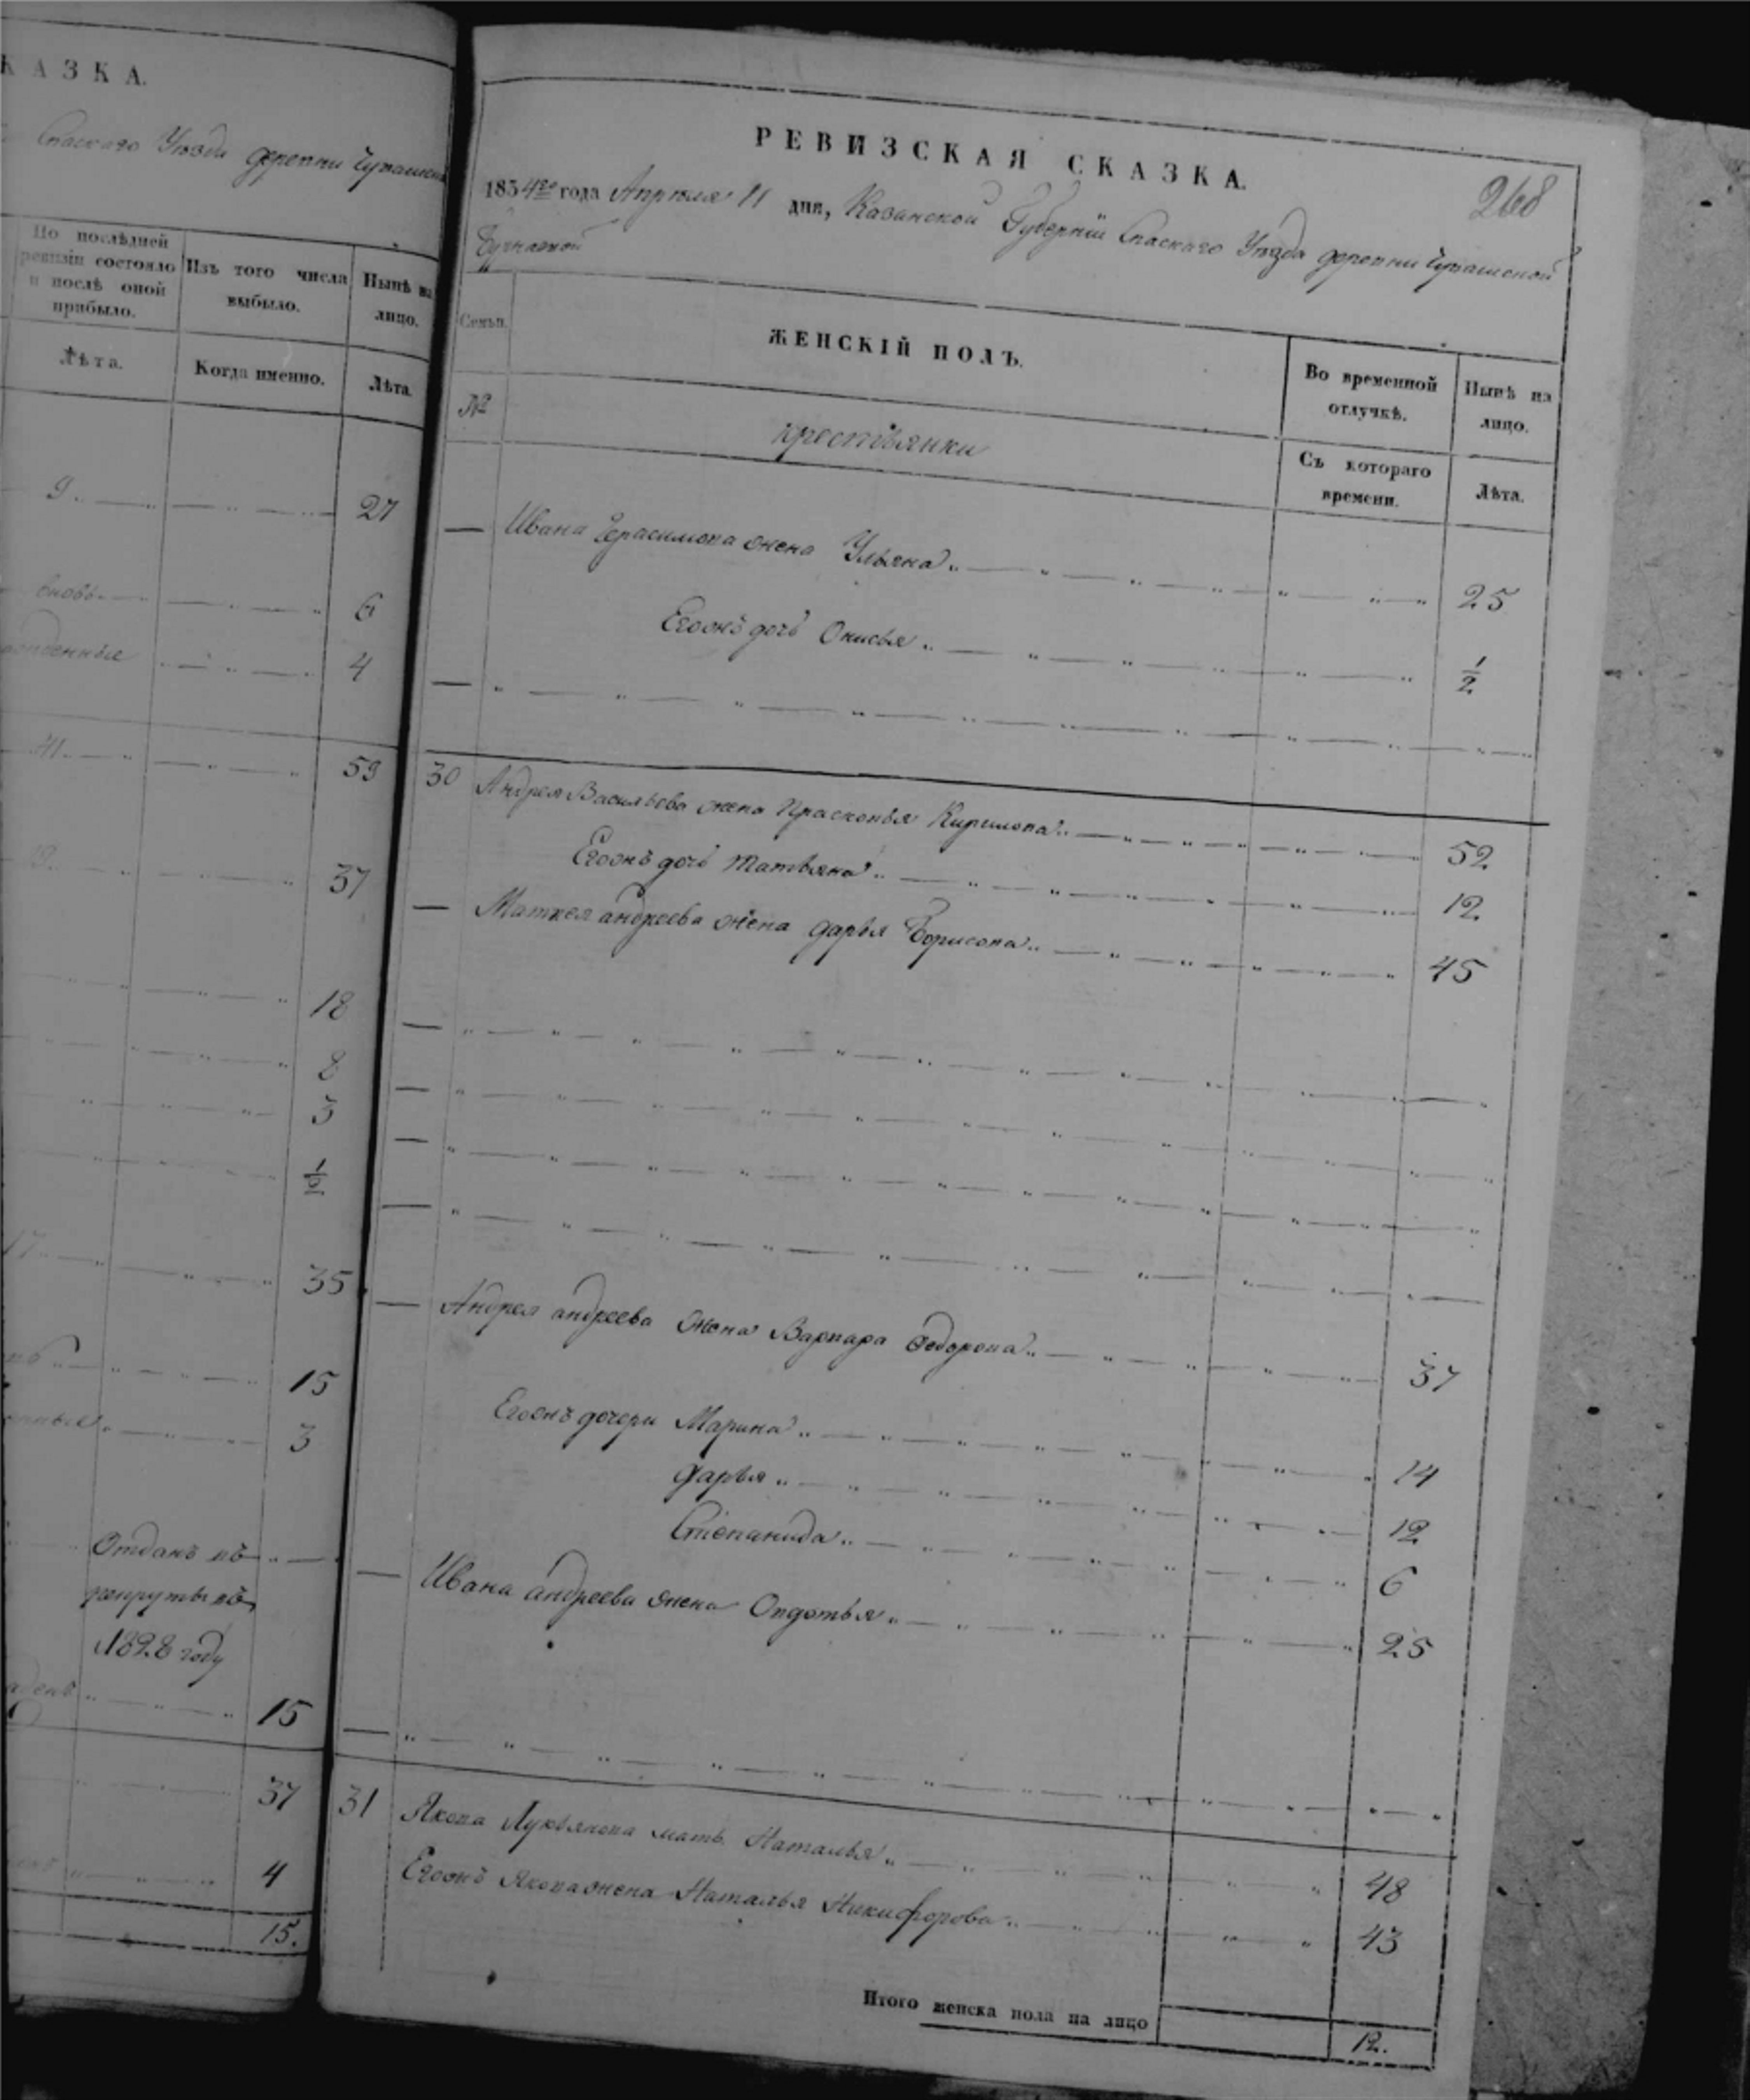 КАЗКА.
Спаскаго Уѣзда деревни Чувашской
По послѣдней
ревизіи состояло
и послѣ оной
прибыло.
Изъ того числа
выбыло.
Нынѣ на
лицо.
Лѣта.
Когда именно.
Лѣта.
9
27
вновь
6
рожденные
4
41
59
19
37
18
8
3
1/2
17
35
15
3
Отданъ въ
рекруты въ
1828 году
15
37
4
15.
РЕВИЗСКАЯ СКАЗКА.
268
1854го года Апрѣля 11 дня, Казанской Губерніи Спаскаго Уѣзда деревни Чувашской
Семьи.
ЖЕНСКІЙ ПОЛЪ.
Во временной
отлучкѣ.
Нынѣ на
лицо.
№
крестьянки
Съ котораго
времени.
Лѣта.
Ивана Герасимова жена Ульяна 25
Егожъ дочь Онисья 1/2
30 Андрея Васильева жена Прасковья Кирилова 52
Егожъ дочь Татьяна 12
Матвея андреева жена дарья Борисова 45
Андрея андреева жена Варвара Федорова 37
Егожъ дочери Марина 14
дарья 12
Степанида 6
Ивана андреева жена Овдотья 25
31 Якова Лукьянова мать Наталья 48
Егожъ Якова жена Наталья Никифорова 43
Итого женска пола на лицо 12.